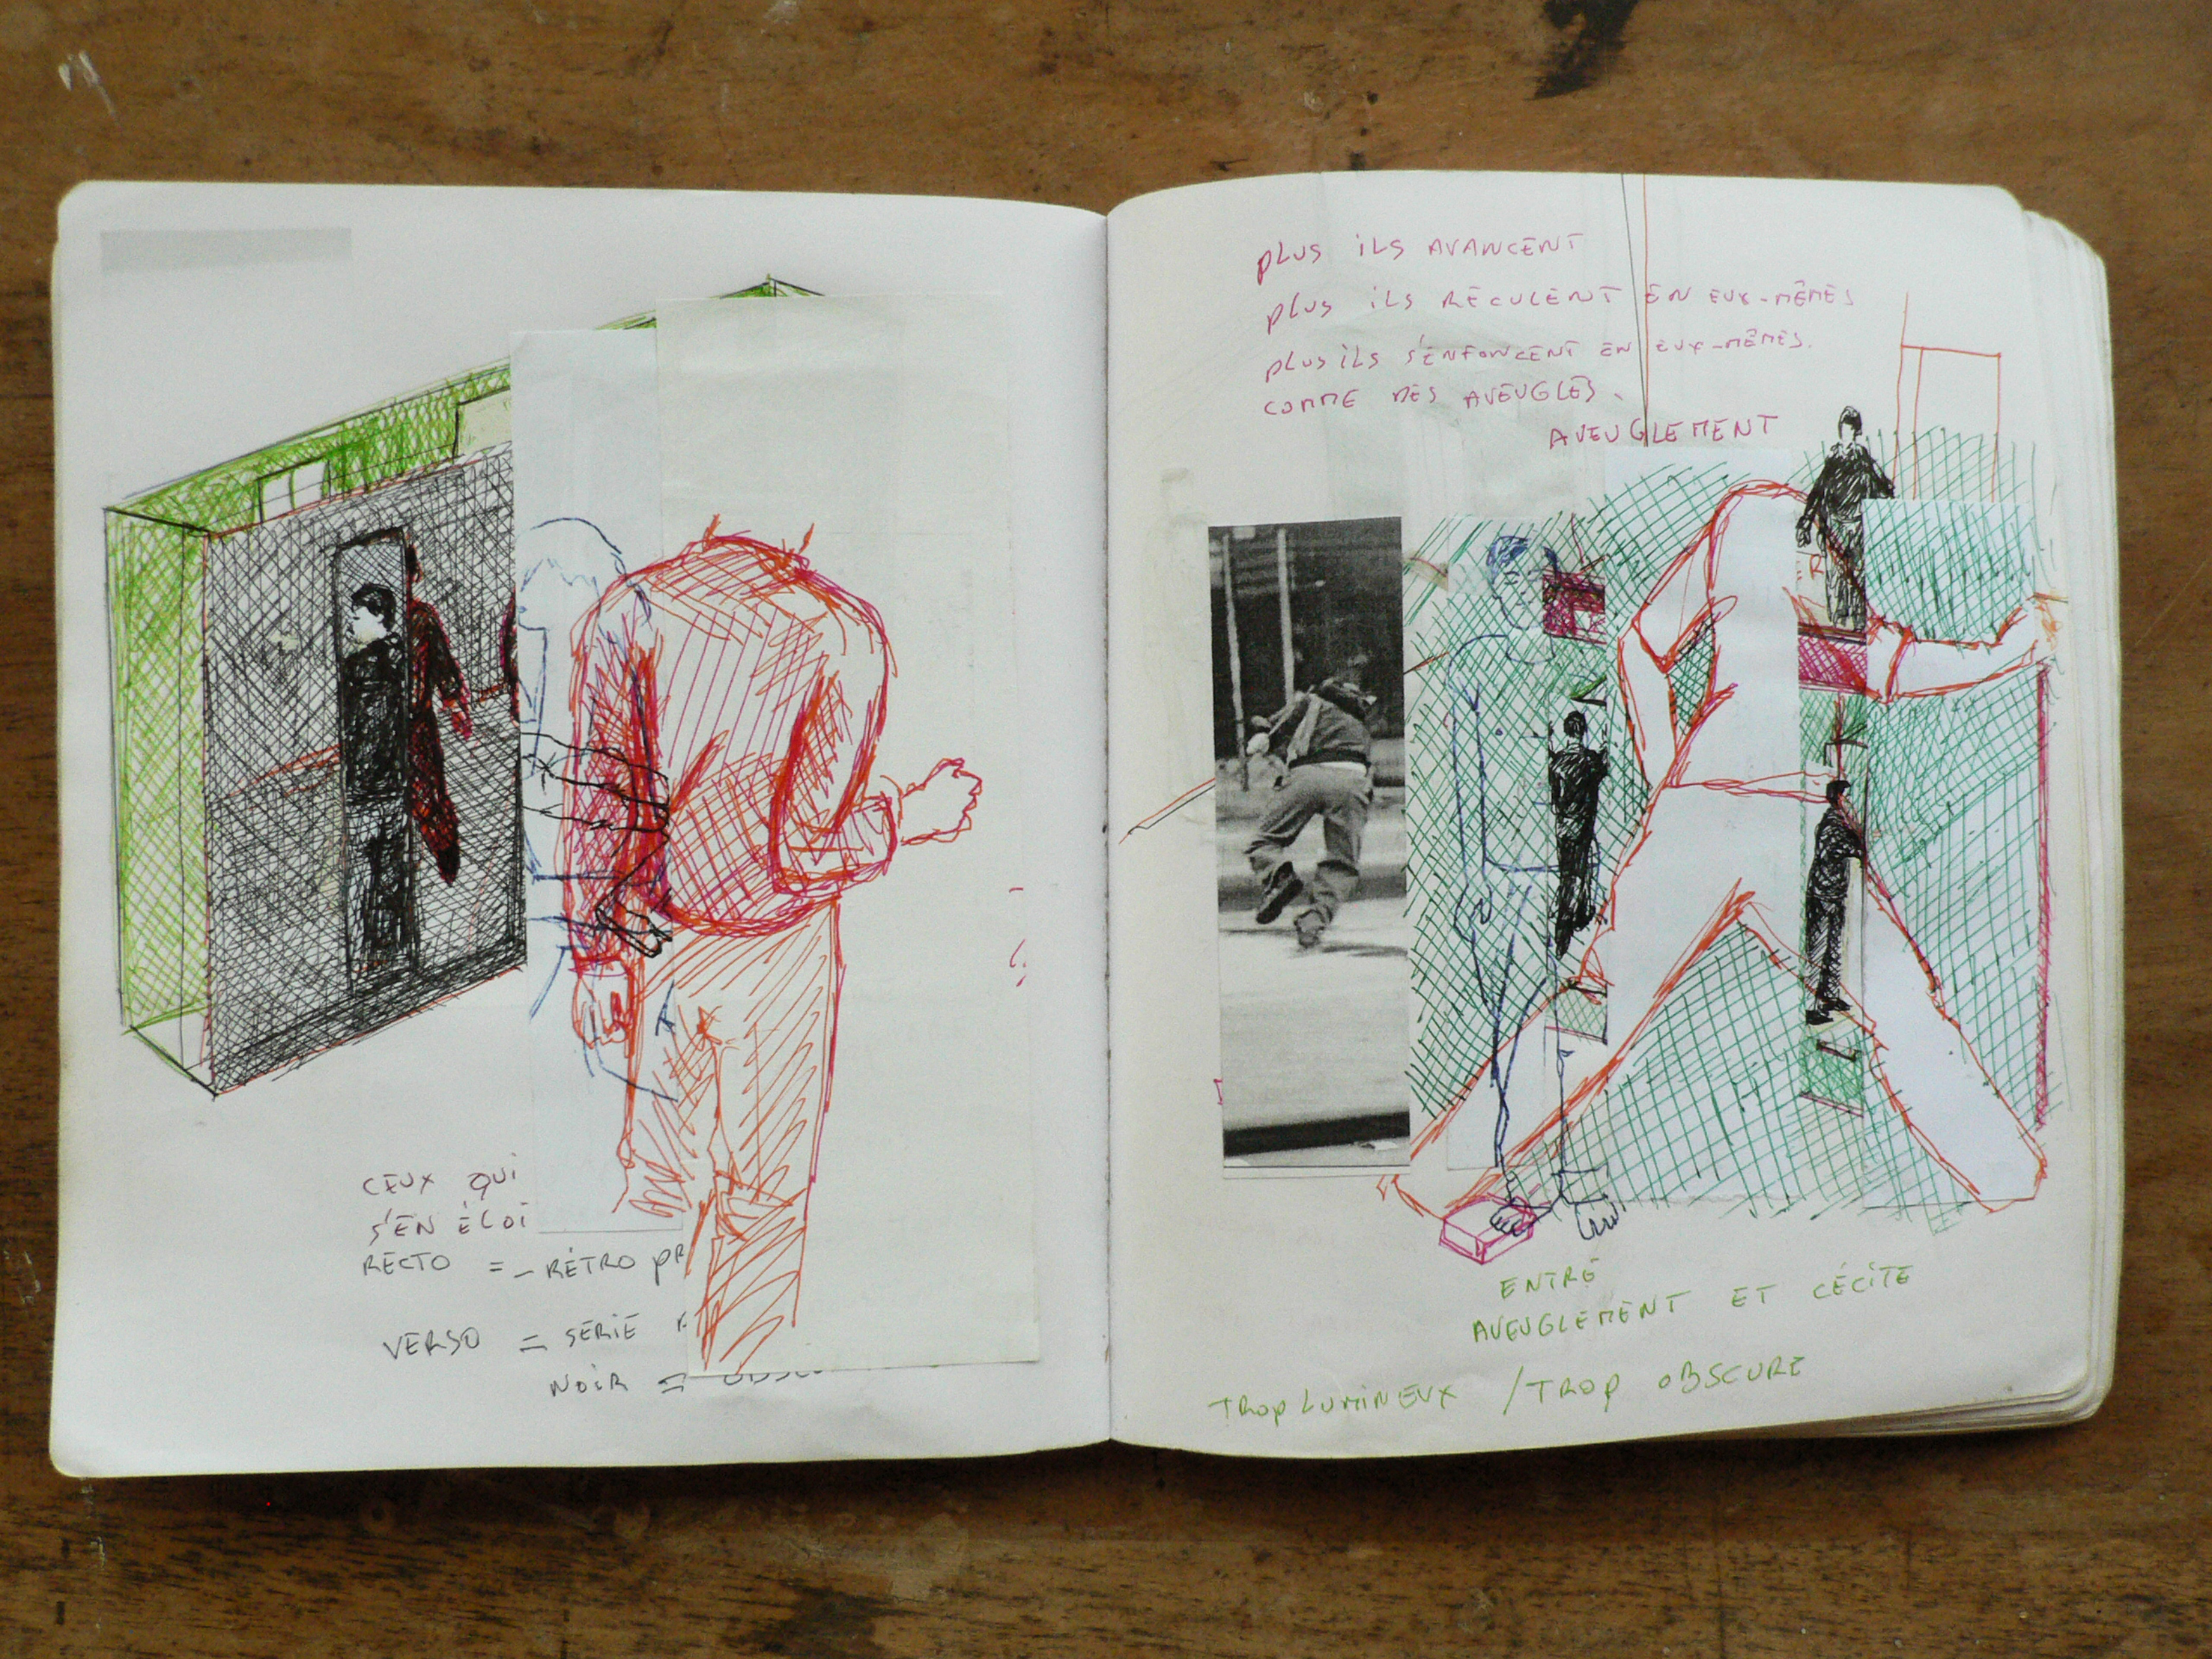 CEUX QUI
S'EN ÉLOI
RECTO = - RÉTRO PR
VERSO = SÉRIE
NOIR =
PLUS ILS AVANCENT
PLUS ILS RECULENT EN EUX-MÊMES
PLUS ILS S'ENFONCENT EN EUX-MÊMES.
COMME DES AVEUGLES.
AVEUGLEMENT
ENTRE
AVEUGLEMENT ET CÉCITE
TROP LUMINEUX / TROP OBSCURE